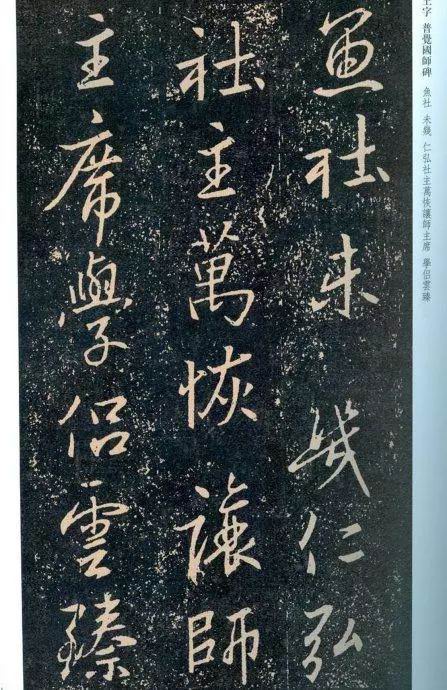 魚社未幾仁弘
社主萬恢讓師
主席學侶雲臻
王字 普覺國師碑 魚社 未幾 仁弘社主萬恢讓師主席 學侶雲臻